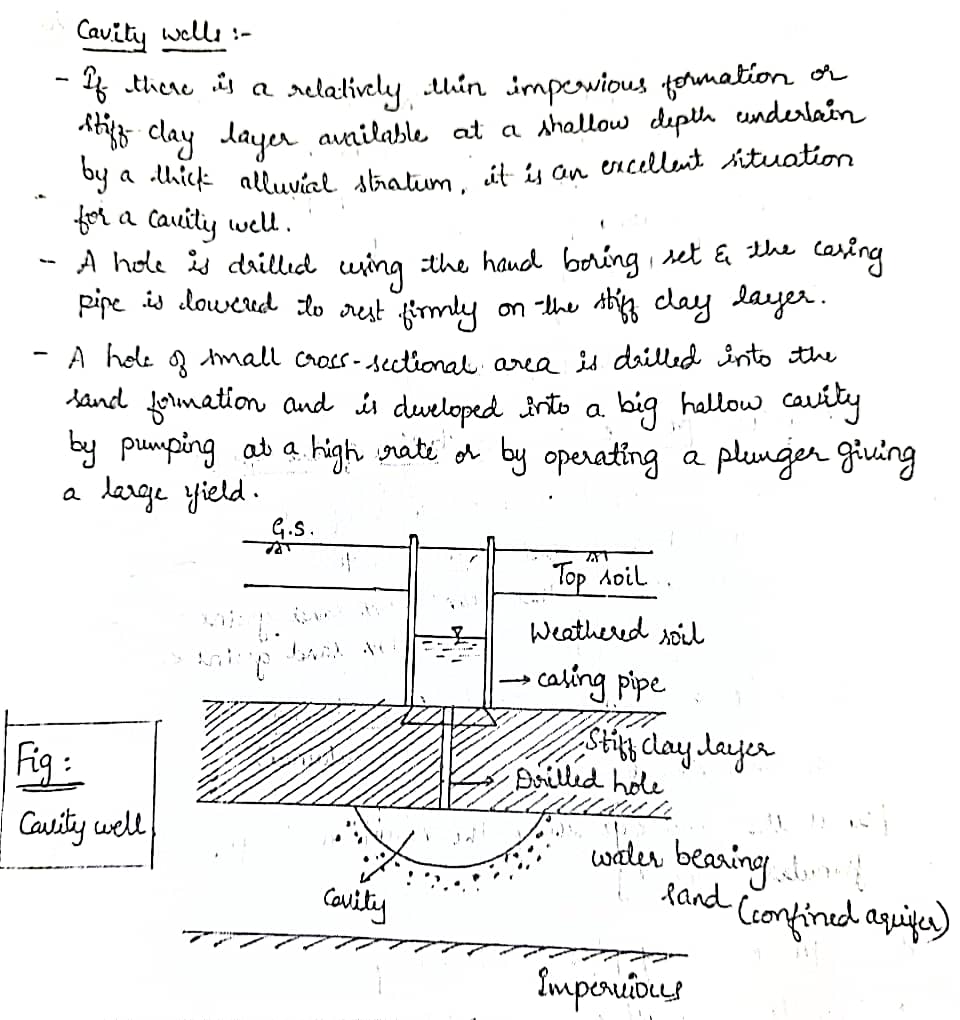 Cavity wells :-
- If there is a relatively thin impervious formation or
stiff clay layer available at a shallow depth underlain
by a thick alluvial stratum, it is an excellent situation
for a cavity well.
- A hole is drilled using the hand boring set & the casing
pipe is lowered to rest firmly on the stiff clay layer.
- A hole of small cross-sectional area is drilled into the
sand formation and is developed into a big hallow cavity
by pumping at a high rate or by operating a plunger giving
a large yield.
G.S.
Top soil
Weathered soil
→ casing pipe
Stiff clay layer
Drilled hole
Fig :
Cavity well
water bearing
sand (confined aquifer)
Cavity
Impervious